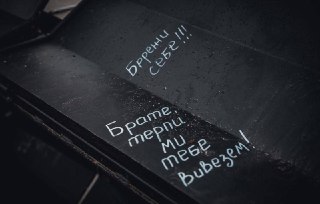 Бережи
себе!!!
Брате,
терпи
ми
тебе
вивезем!